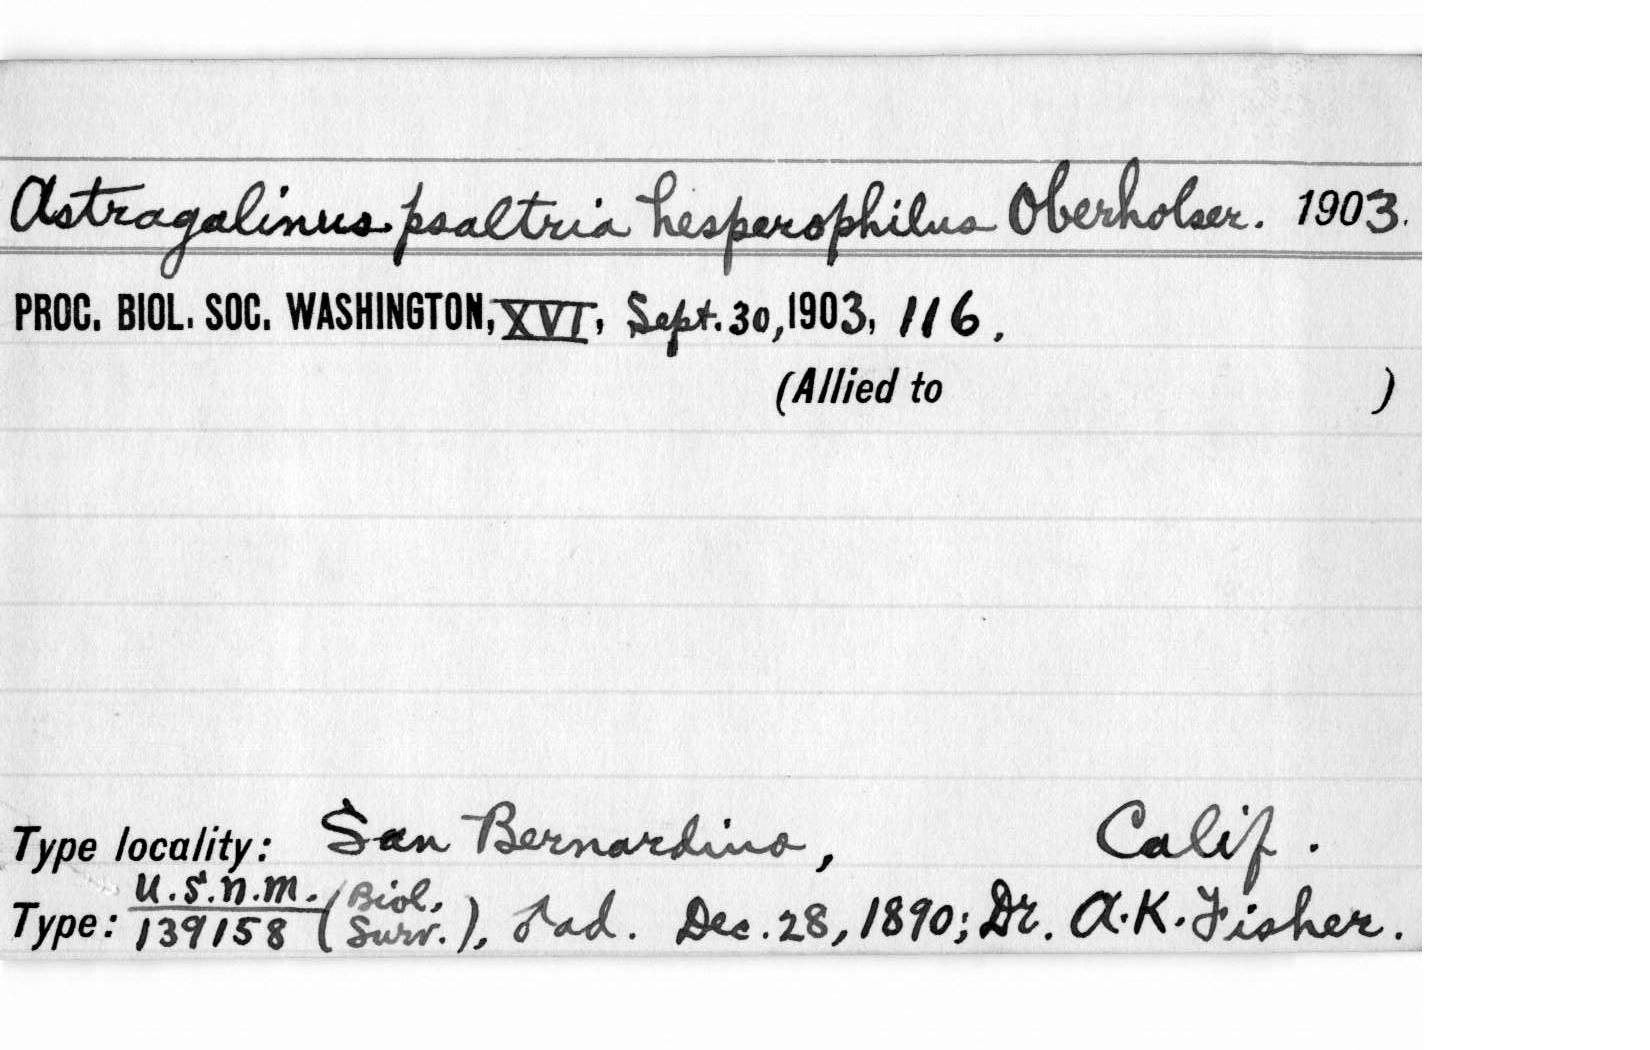 Astragalinus psaltria hesperophilus Oberholser. 1903.
PROC. BIOL. SOC. WASHINGTON, XVI, Sept. 30, 1903, 116.
(Allied to )
Type locality: San Bernardino, Calif.
Type: U.S.N.M. 139158 (Biol. Surv.), ad. Dec. 28, 1890; Dr. A.K. Fisher.